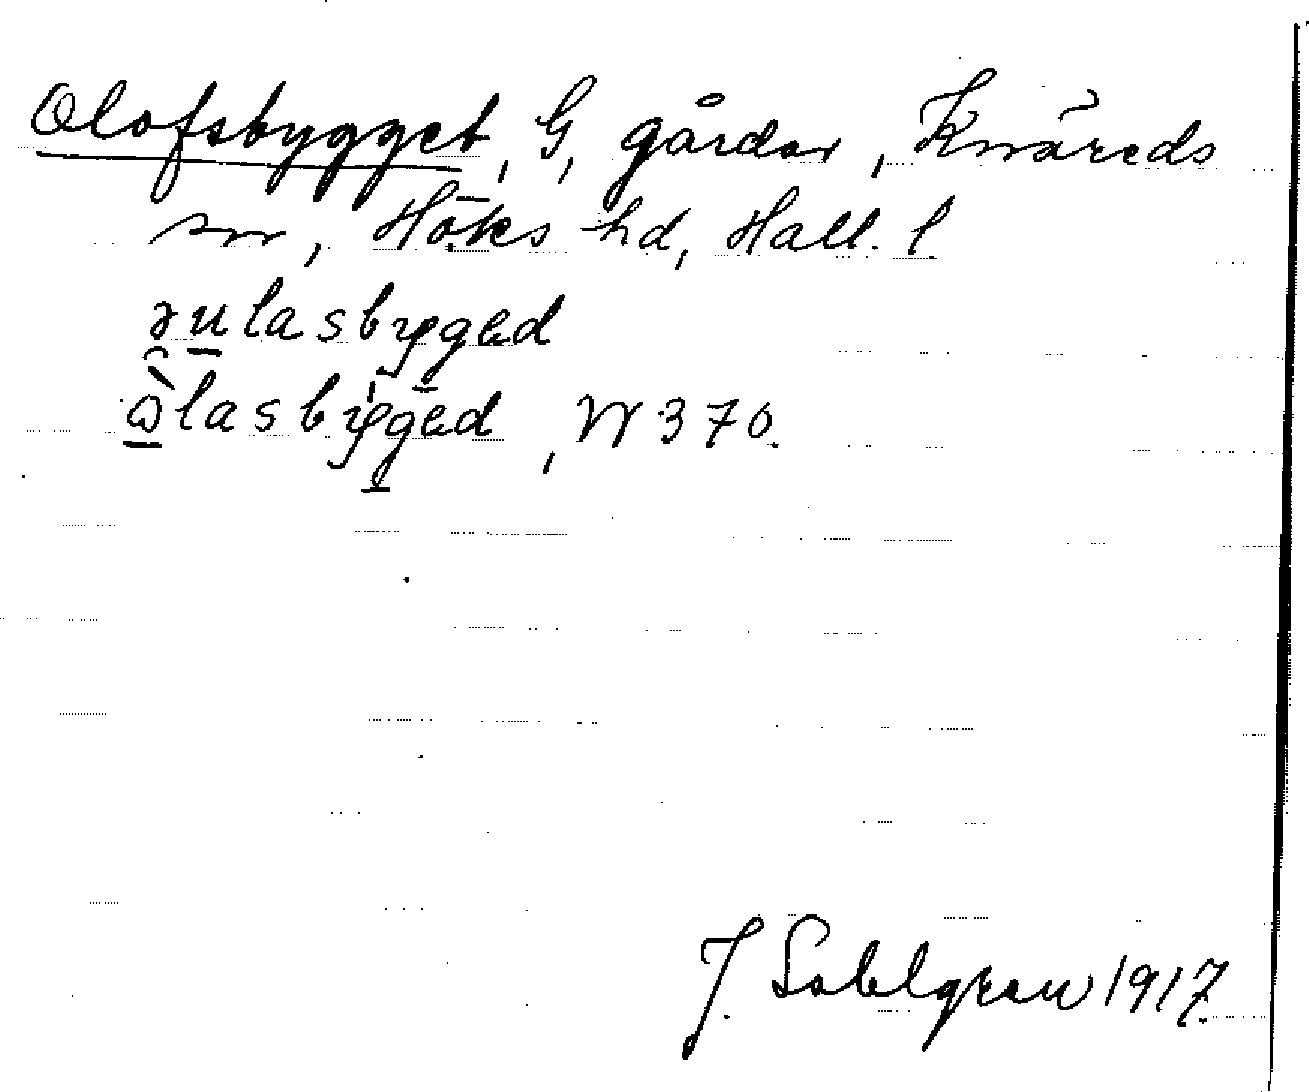 Olofsbygget, G, gårdar, Knäreds
sn, Höks hd, Hall. l
əulasbyged
ὰlasbyged, W 370.
J. Sahlgren 1917.